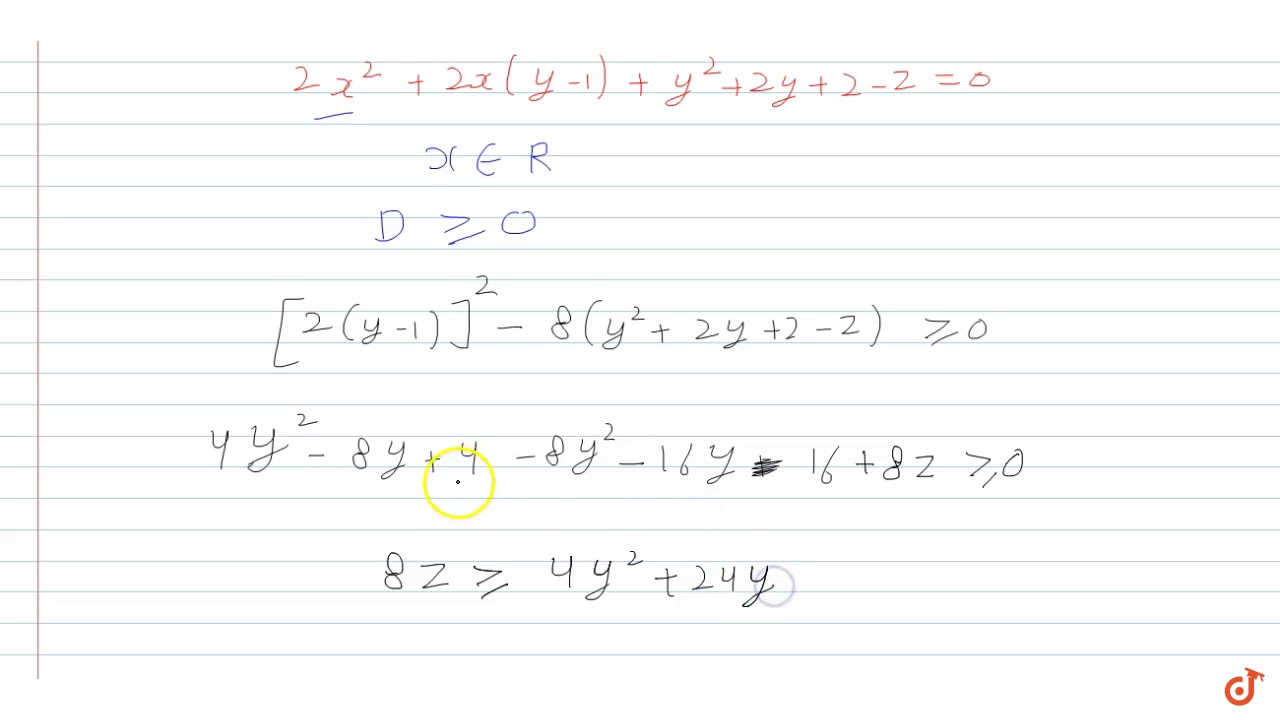 2x² + 2x(y-1) + y² + 2y + 2 - z = 0
x ∈ R
D ≥ 0
[2(y-1)]² - 8(y² + 2y + 2 - z) ≥ 0
4y² - 8y + 4 - 8y² - 16y - 16 + 8z ≥ 0
8z ≥ 4y² + 24y